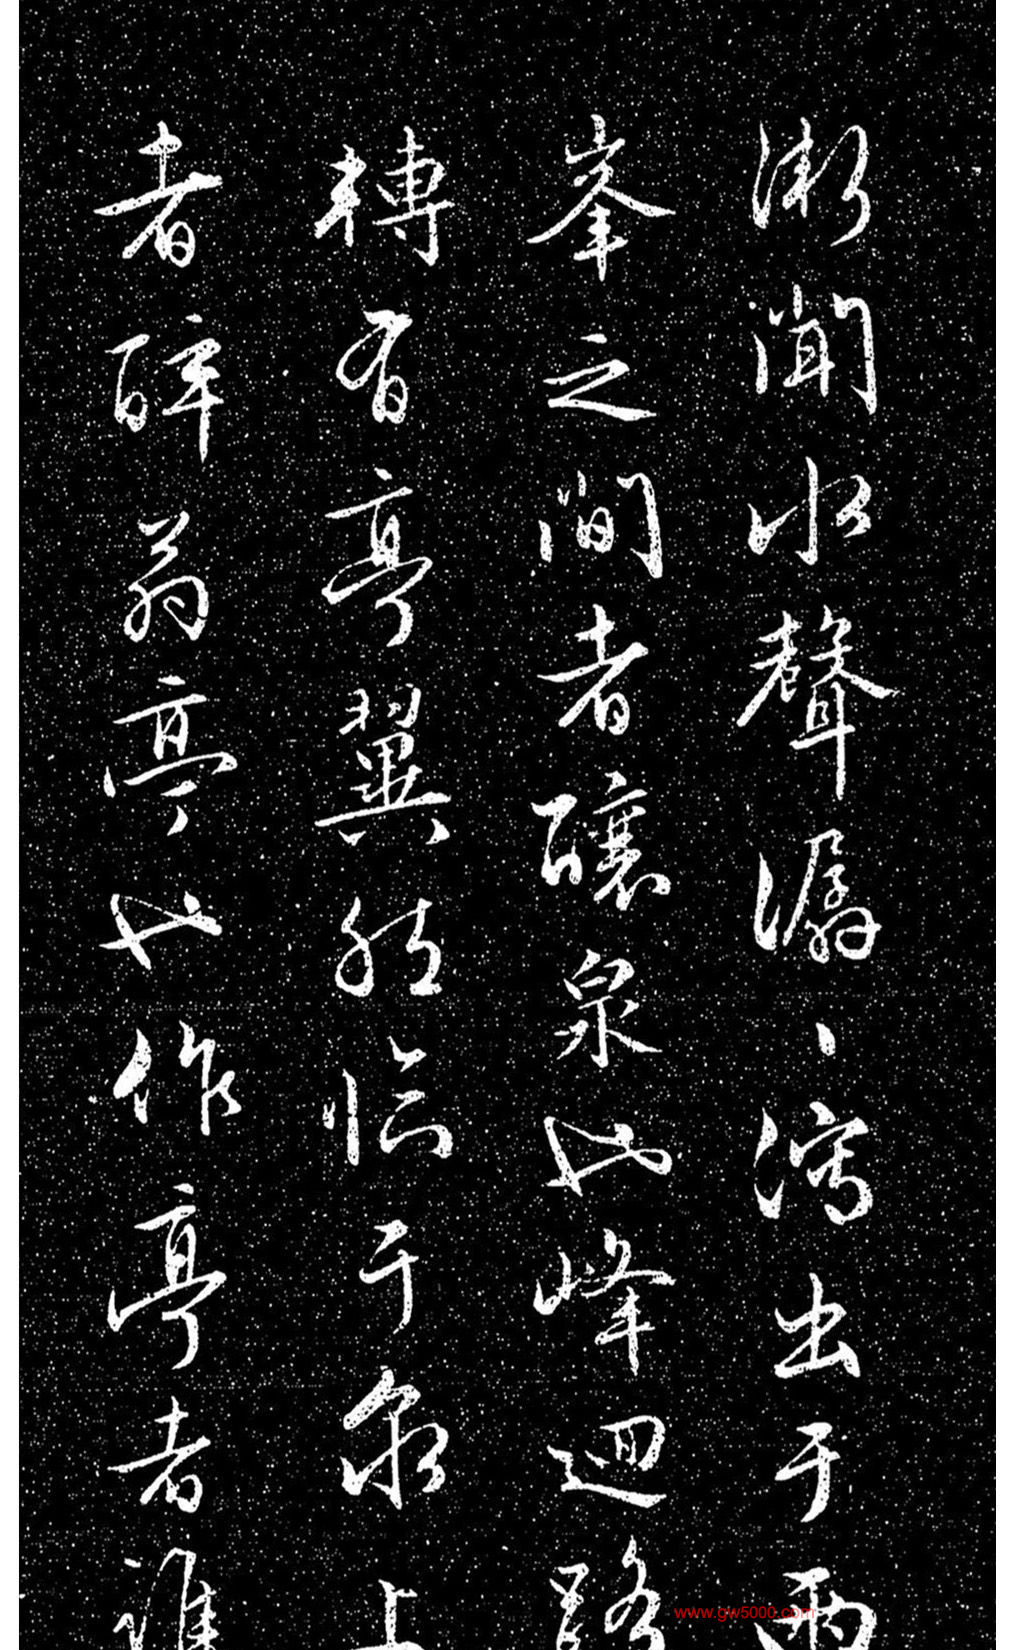 漸聞水聲潺丶瀉出于兩
峯之間者釀泉也峰迴路
轉有亭翼然臨于泉上
者醉翁亭也作亭者誰
www.gw5000.com